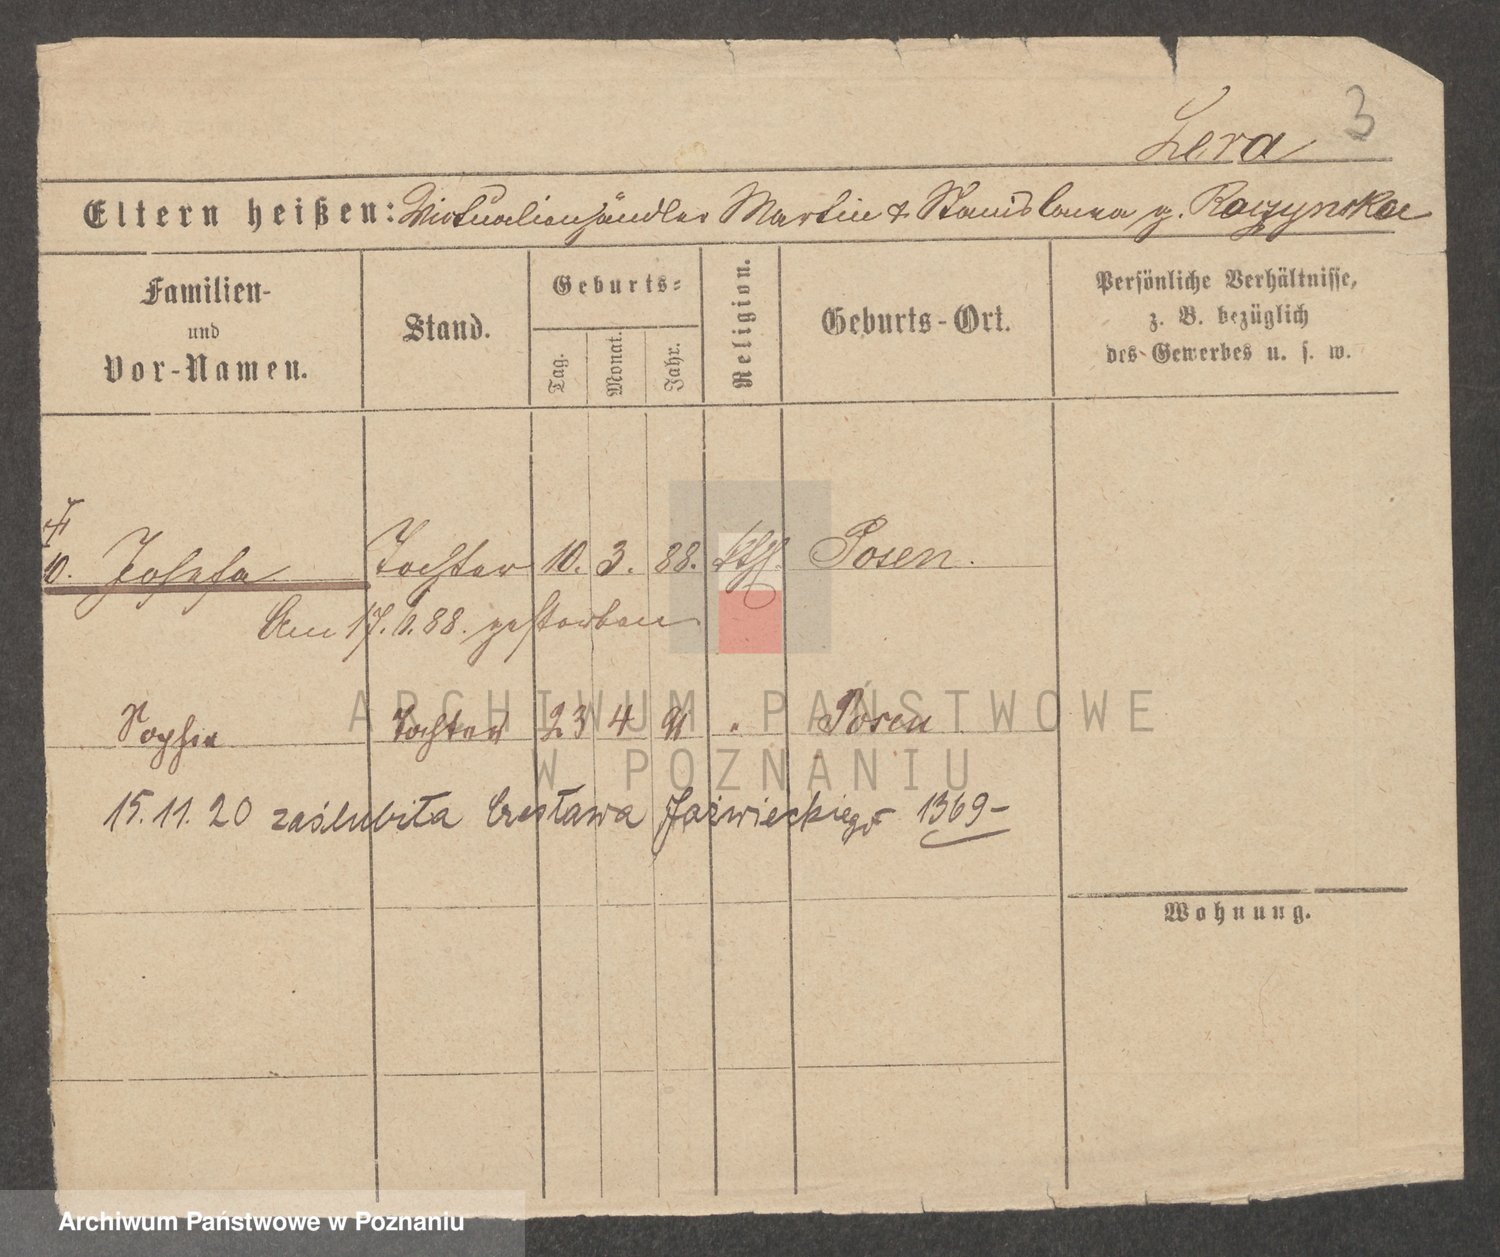 3
Lera
Eltern heißen: Viktualienhändler Martin & Stanislawa g. Raczynska
Familien- und Vor-Namen.
Stand.
Geburts-
Tag.
Monat.
Jahr.
Religion.
Geburts-Ort.
Persönliche Verhältnisse,
z. B. bezüglich
des Gewerbes u. s. w.
10. Josefa Tochter 10. 3. 88. kth. Posen.
Am 17. 6. 88. gestorben
Sophia Tochter 23 4 91 " Posen
15. 11. 20 zaślubiła Czesława Jaźwieckiego 1369-
Wohnung.
ARCHIWUM PAŃSTWOWE
W POZNANIU
Archiwum Państwowe w Poznaniu